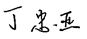 丁忠亚